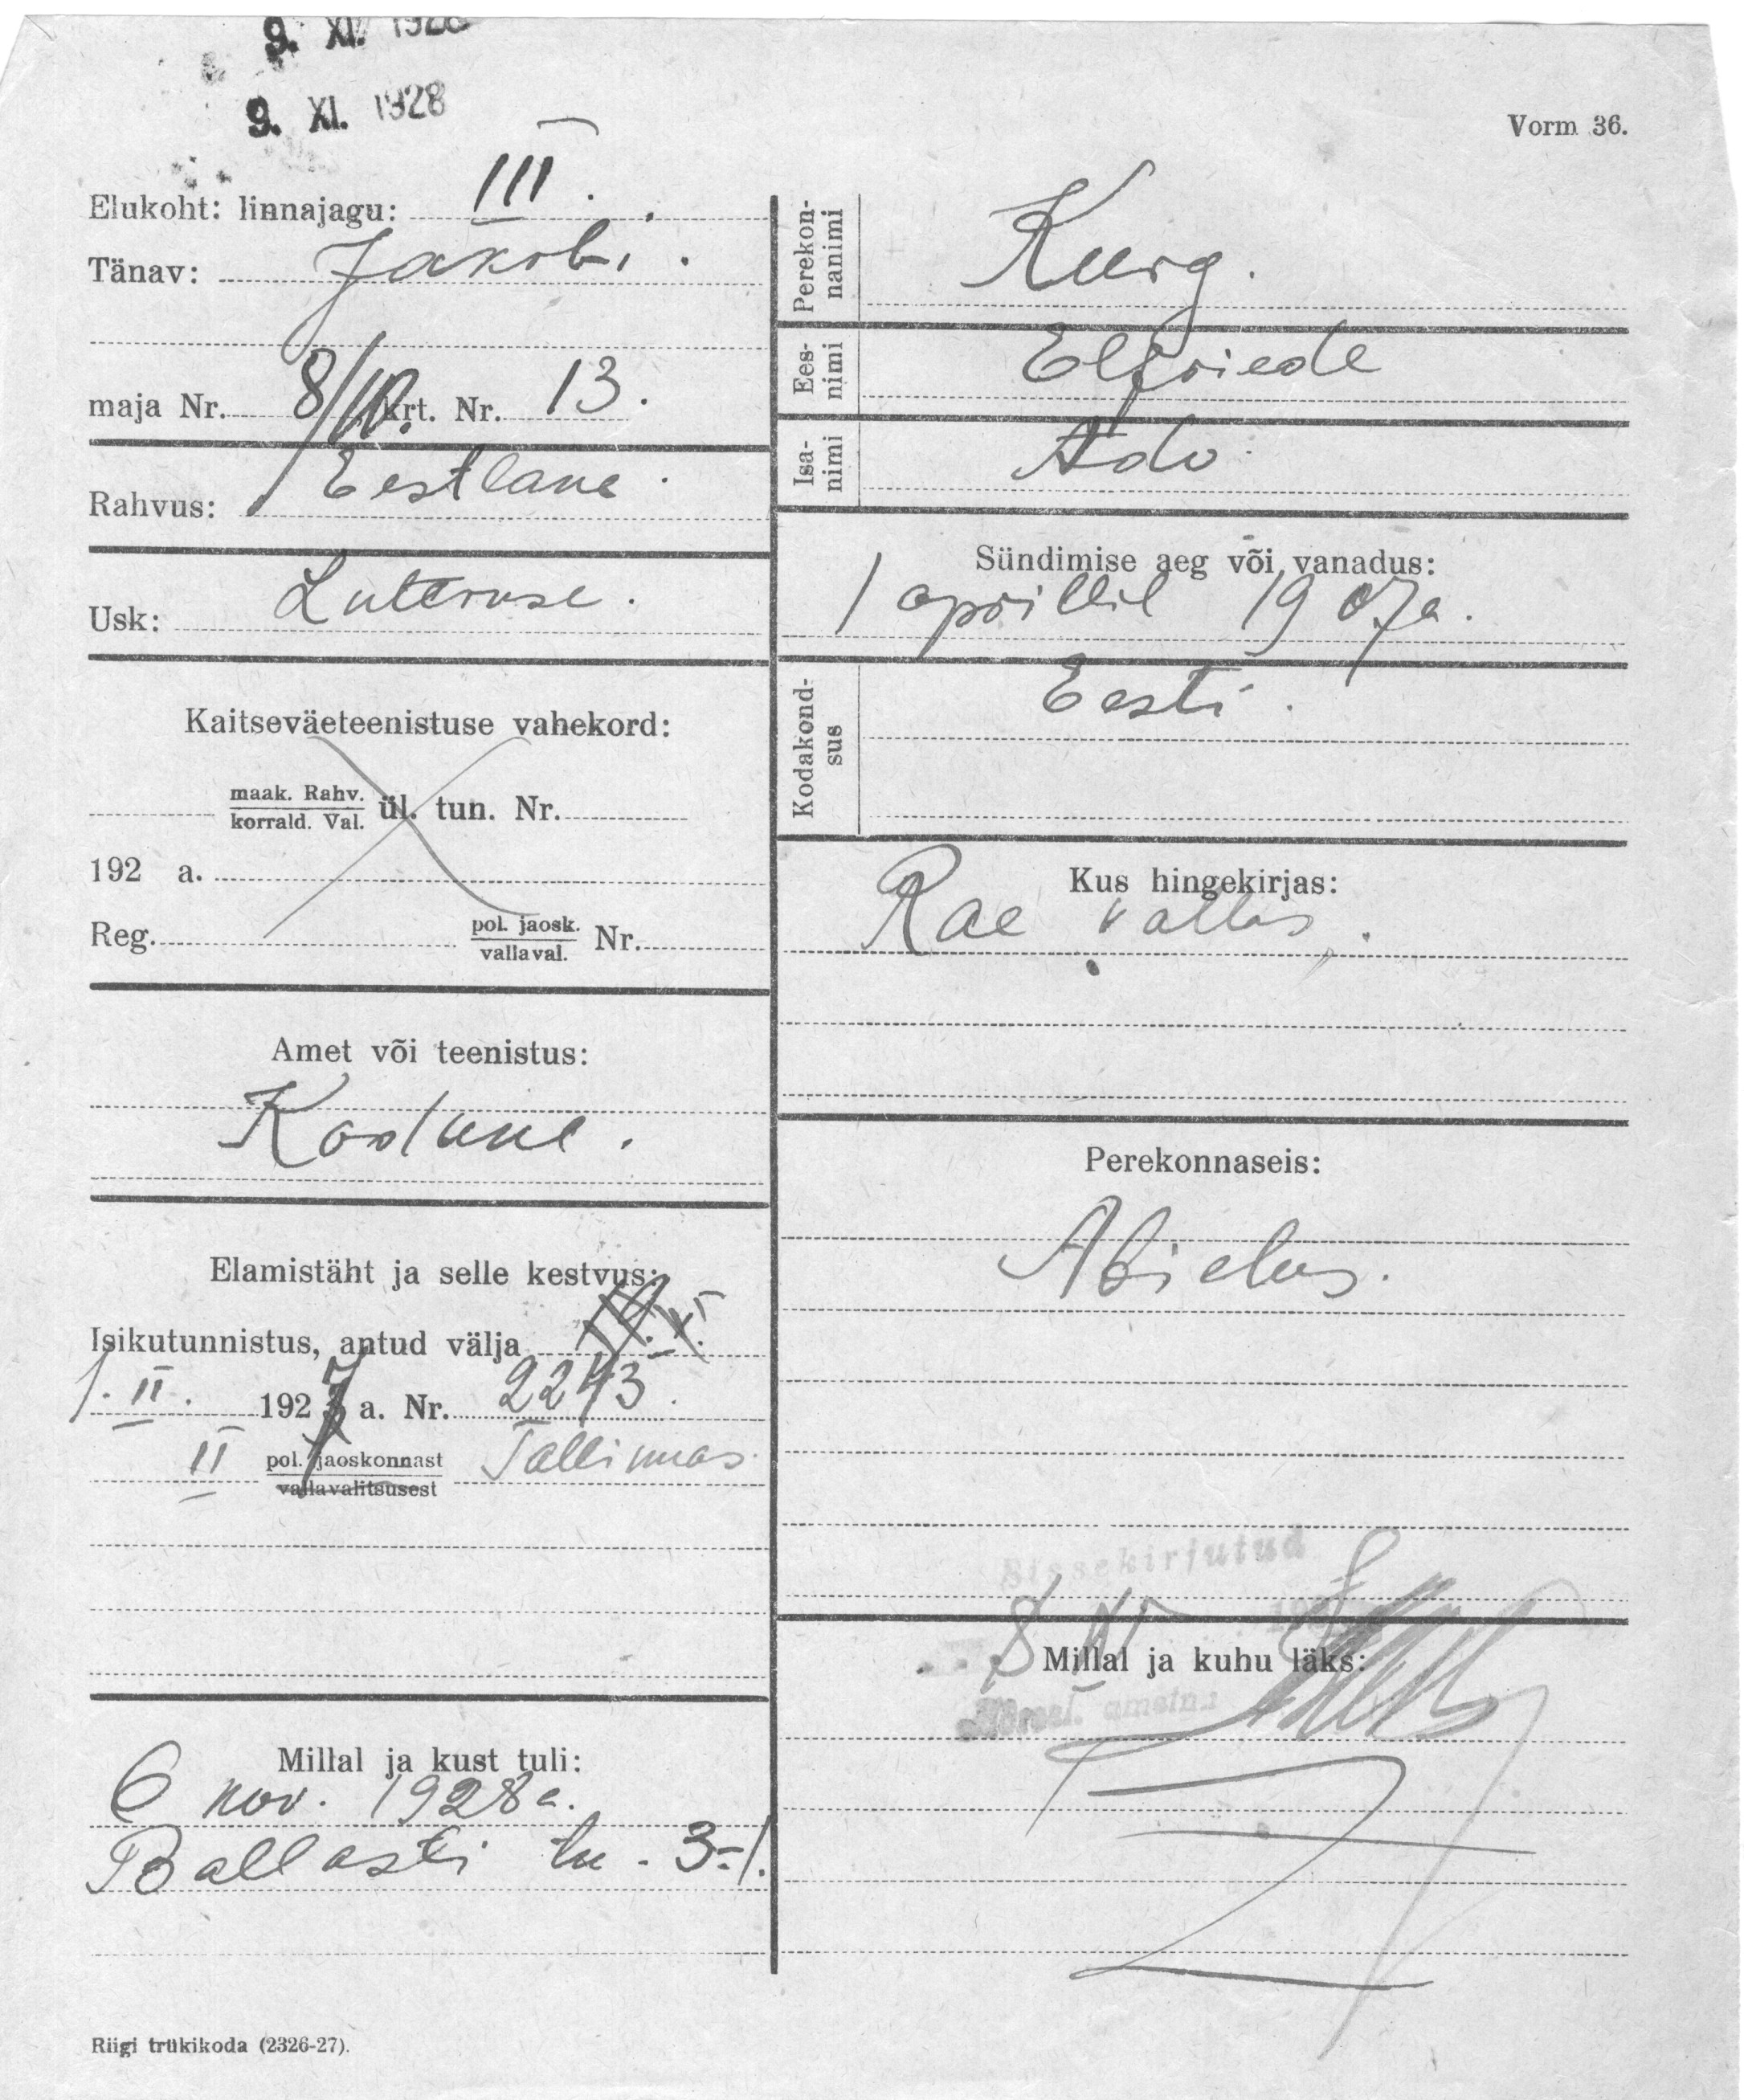 9. XI. 1928
9. XI. 1928
Vorm 36.
Elukoht: linnajagu: III.
Tänav: Jakobi.
maja Nr. 8/10. krt. Nr. 13.
Rahvus: Eestlane.
Usk: Luteruse.
Kaitseväeteenistuse vahekord:
maak. Rahv.
korrald. Val. ül. tun. Nr.
192 a.
Reg. pol. jaosk.
vallaval. Nr.
Amet või teenistus:
Kodune.
Elamistäht ja selle kestvus:
Isikutunnistus, antud välja
1. II. 1927 a. Nr. 2243.
II pol. jaoskonnast Tallinnas.
vallavalitsusest
Millal ja kust tuli:
6 nov. 1928 a.
Ballasti tn. 3-1.
Riigi trükikoda (2326-27).
Perekonnanimi
Kurg.
Eesnimi
Elfriede
Isanimi
Ado
Sündimise aeg või vanadus:
1 aprillil 1907a.
Kodakondsus
Eesti.
Kus hingekirjas:
Rae vallas.
Perekonnaseis:
Abielus.
Sissekirjutud
8 XI
Millal ja kuhu läks: